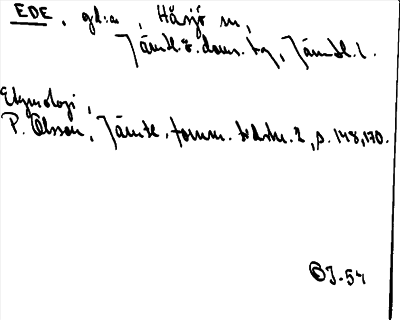 EDE, gd:a, Håsjö sn,
Jämtl. ö. doms. tg, Jämtl. l.
Etymologi,
P. Olsson, Jämtl. fornm. tidskr. 2, s. 148, 170.
J-54